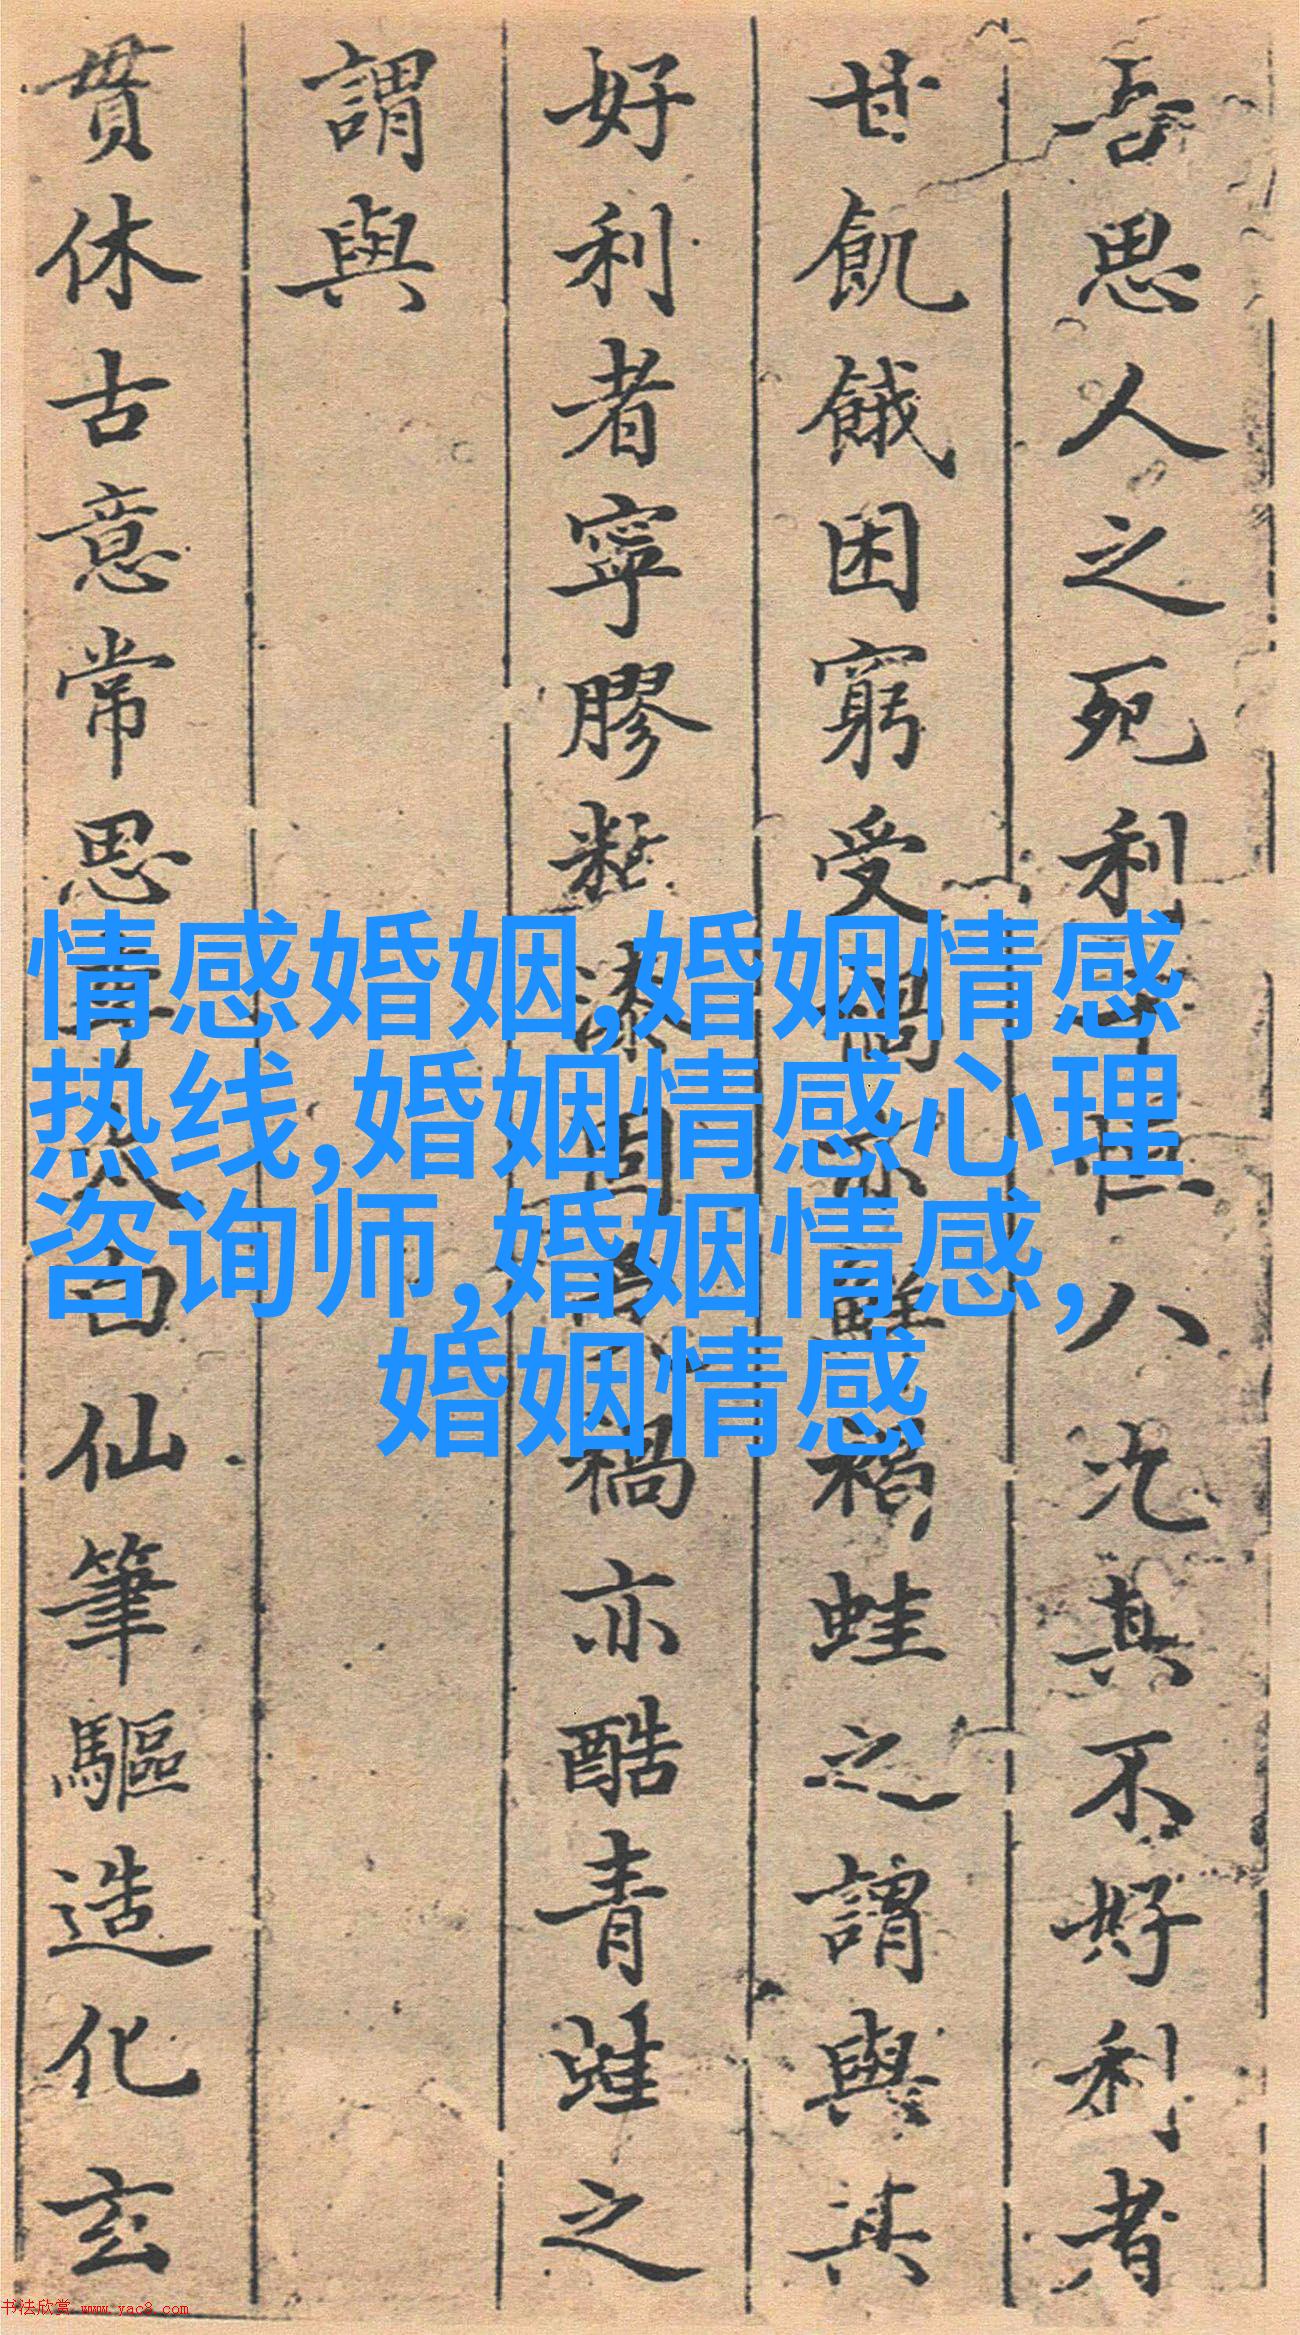 吾思人之死利十恒八九其不好利者
甘飢餓困窮受禍亦鮮稻蛙之謂與其
好利者寧膠黏漆固為禍亦酷青蛙之
謂與
貫休古意常思李太白仙筆驅造化玄
情感婚姻,婚姻情感
热线,婚姻情感心理
咨询师,婚姻情感,
婚姻情感
书法欣赏 www.yac8.com